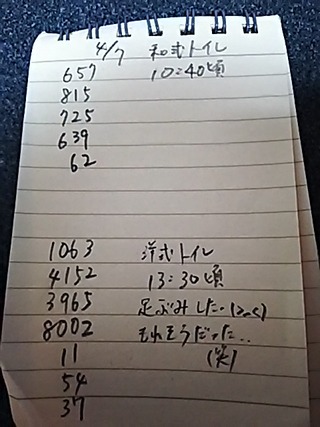 4/7 和式トイレ
657 10:40頃
815
725
639
62
1063 洋式トイレ
4152 13:30頃
3965 足ぶみした..(>_<)
8002 もれそうだった..
11 (笑)
54
37